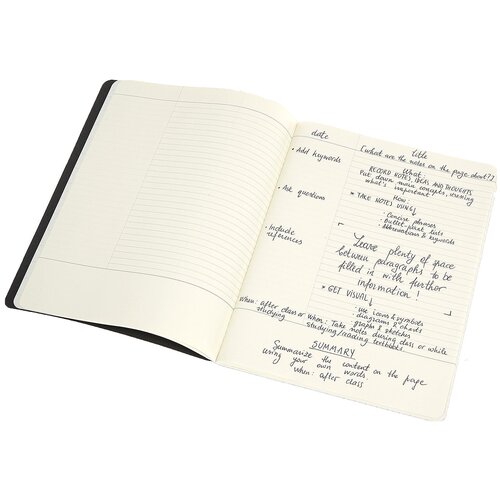 date
title
(what are the notes on the page about?)
• Add keywords
• Ask questions
• Include
references
When: after class or
studying
What:
RECORD NOTES, IDEAS AND THOUGHTS
Put down main concepts, reviewing
what's important
How:
* TAKE NOTES USING
• Concise phrases
• Bullet-point lists
• Abbreviations & keywords
Leave plenty of space
between paragraphs to be
filled in with further
information!
* GET VISUAL
• use icons & symbols
diagrams & charts
• graphs & sketches
When: Take notes during class or while
studying/reading textbooks.
SUMMARY
Summarize the content on the page
using your own words.
When: after class